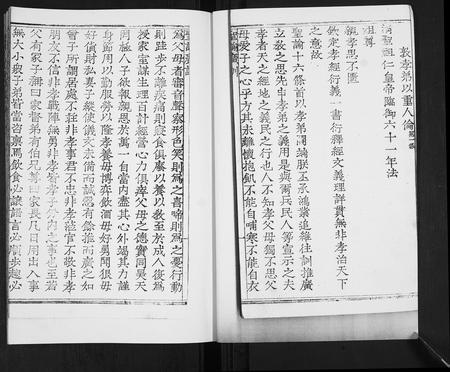 敦孝弟以重人倫
聖祖仁皇帝臨御六十一年法
祖尊
親孝思不匱
欽定孝經衍義一書衍釋經文義理詳貫無非孝治天下
之意故
聖諭十六條首以孝弟開其端朕丕承鴻業追維往訓推廣
立教之思先申孝弟之義用是與爾兵民人等宣示之夫
孝者天之經地之義民之行也人不知孝父母獨不思父
母愛子之心乎方其未離懷抱飢不能自哺寒不能自衣
為父母者審音聲察形色笑則為之喜啼則為之憂行動
則跬步不離疾痛則寢食俱廢以養以教至於成人復為
授家室謀生理百計經營心力俱瘁父母之德實同昊天
罔極人子欲報親恩於萬一自當内盡其心外竭其力謹
身節用以勤服勞以隆孝養毋博奕飲酒毋好勇鬪狠毋
好貨財私妻子縱使儀文未備而誠慤有餘推而廣之如
曾子所謂居處不莊非孝事君不忠非孝蒞官不敬非孝
朋友不信非孝戰陣無勇非孝皆孝子分内之事也至若
父有冢子稱曰家督弟有伯兄尊曰家長凡日用出入事
無大小衆子弟皆當咨禀焉飲食必讓語言必順步趨必